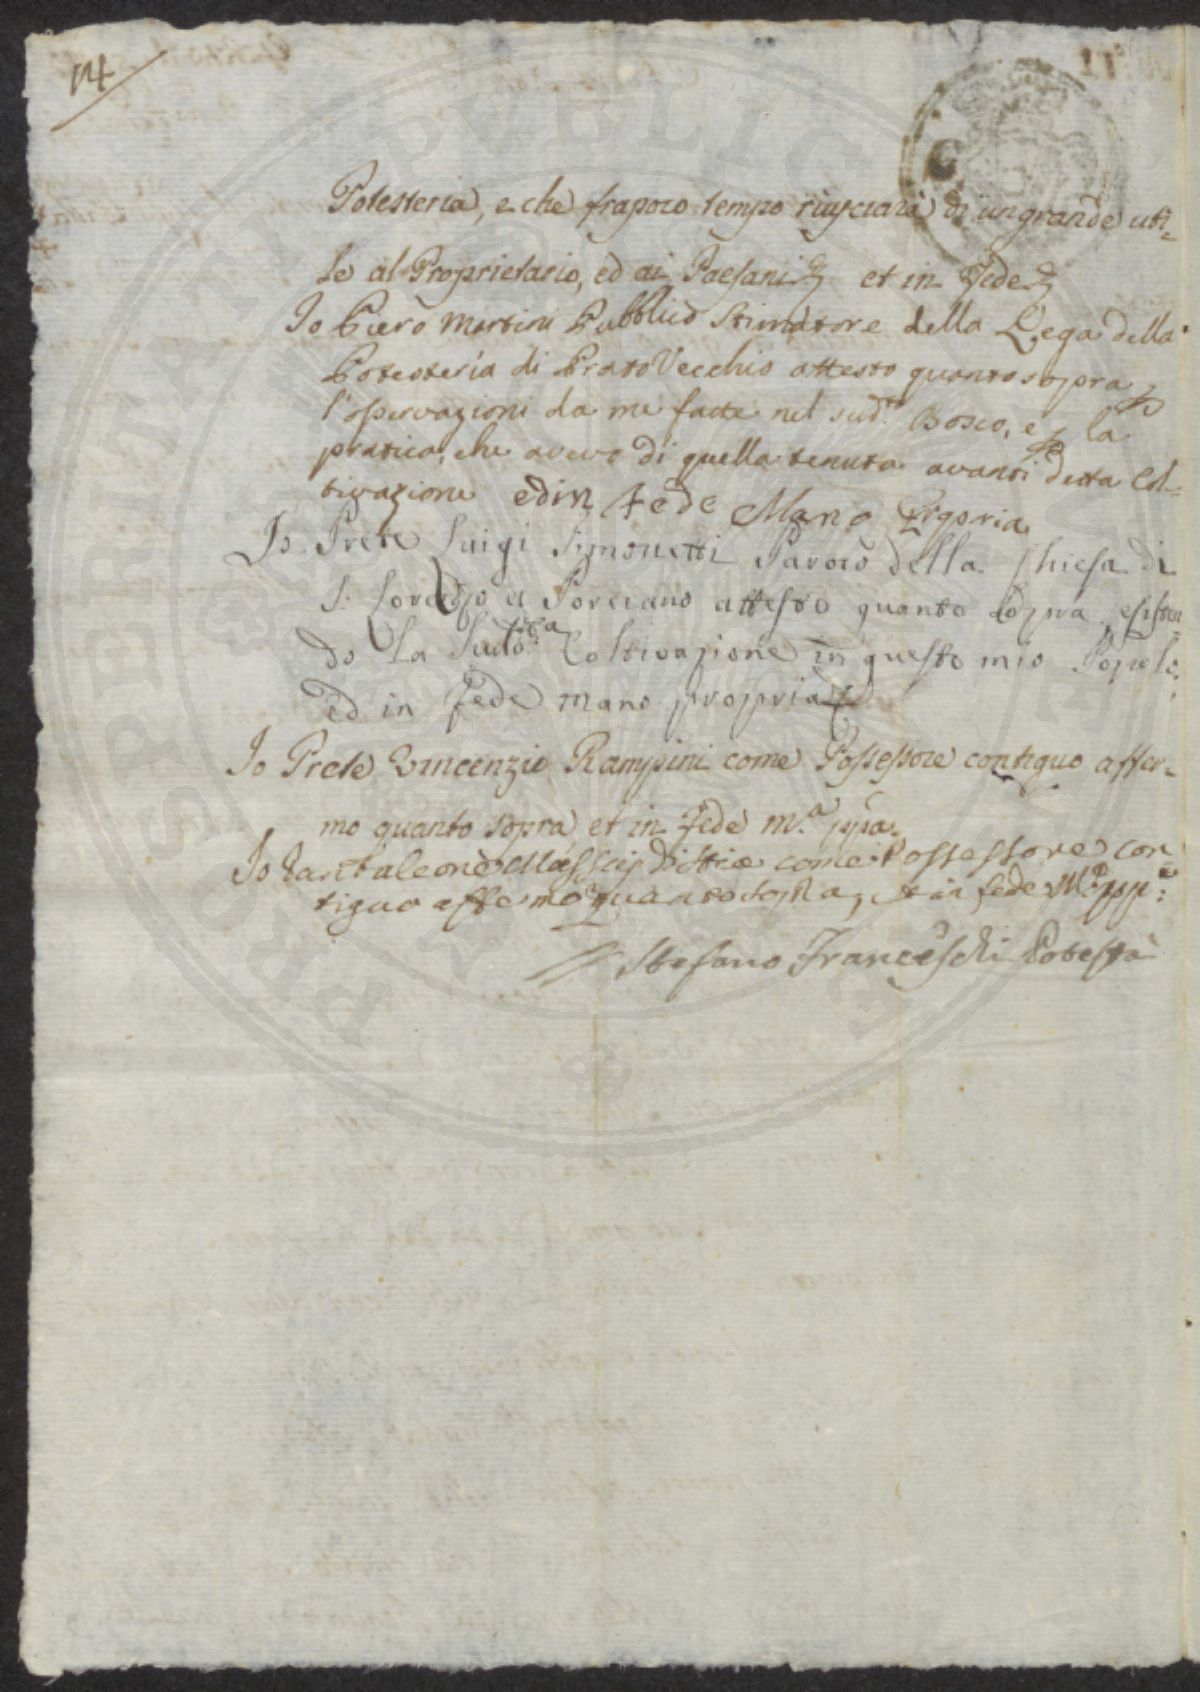 14
Potesteria, e che frapoco tempo riuscirà di un grande uti-
le al Proprietario, ed ai Paesani et in Fede
Io Piero Martini Pubblico Stimatore della Lega della
Potesteria di Prato Vecchio attesto quanto sopra
l'osservazioni da me fatte nel sud.º Bosco, e la
pratica, che avevo di quella tenuta avanti detta Col-
tivazione ed in fede Mano
Io Prete Luigi Simonetti Paroco della Chiesa di
S. Lorenzo a Porciano attesto quanto sopra esisten
do la Coltivazione in questo mio Popolo,
ed in Fede mano propria
Io Prete Vincenzio Rampini come Possessore contiguo affer-
mo quanto sopra et in Fede m.ª ppa.
Io Pantaleone come Possessore con
tiguo affermo quanto sopra, et in fede M.º pp.ª
Stefano Franceschi Potestà
PROSPERITATI PUBLICAE